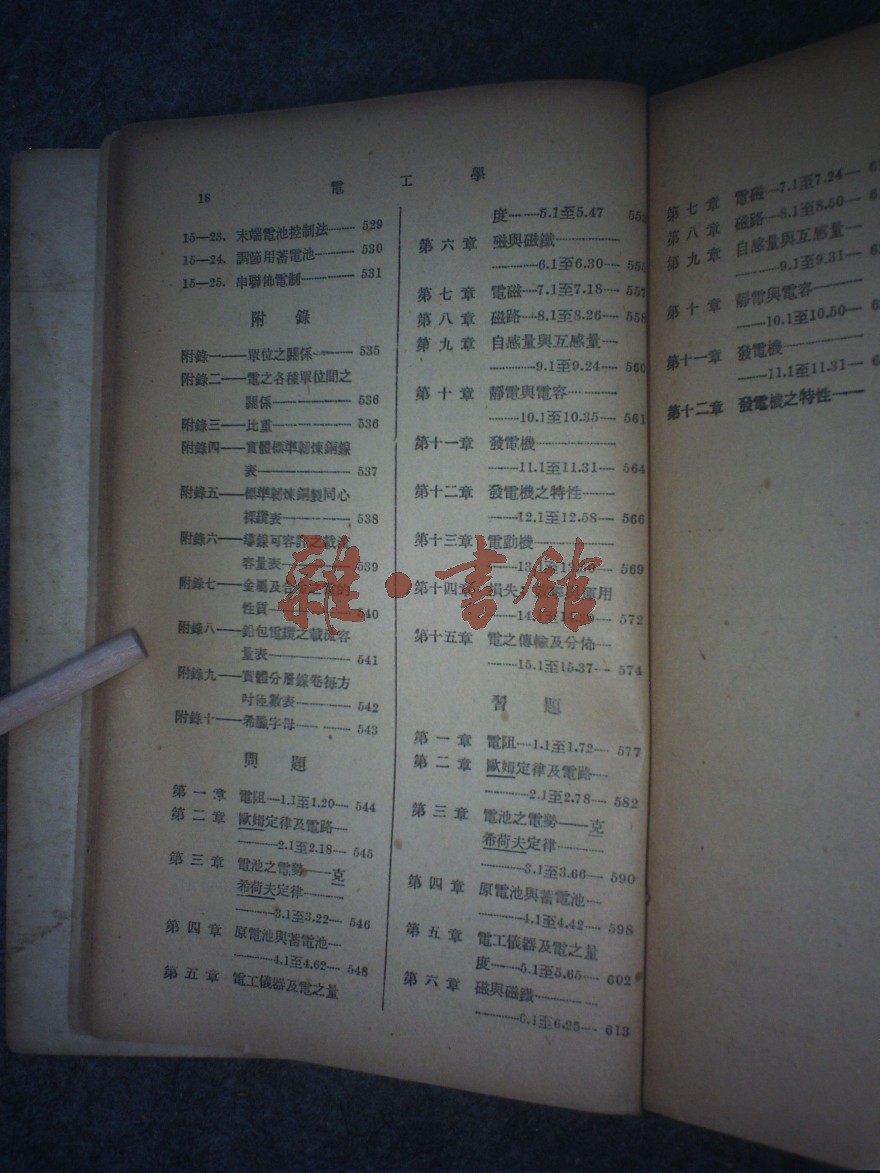 18
電工學
15—23. 末端電池控制法—— 529
15—24. 調節用蓄電池—— 530
15—25. 串聯佈電制—— 531
附錄
附錄一——單位之關係—— 535
附錄二——電之各種單位間之
關係—— 536
附錄三——比重—— 536
附錄四——實體標準韌煉銅線
表—— 537
附錄五——標準韌煉銅製同心
裸纜表—— 538
附錄六——導線可容許之載流
容量表—— 539
附錄七——金屬及合金之電的
性質—— 540
附錄八——鉛包電纜之載流容
量表—— 541
附錄九——實體分層線卷每方
吋匝數表—— 542
附錄十——希臘字母—— 543
問題
第一章 電阻—1.1至1.20— 544
第二章 歐姆定律及電路—
——2.1至2.18— 545
第三章 電池之電勢——克
希荷夫定律——
——3.1至3.22— 546
第四章 原電池與蓄電池—
——4.1至4.62— 548
第五章 電工儀器及電之量
度——5.1至5.47
第六章 磁與磁鐵——
——6.1至6.30—
第七章 電磁—7.1至7.18— 557
第八章 磁路—8.1至8.26— 558
第九章 自感量與互感量—
——9.1至9.24— 560
第十章 靜電與電容——
——10.1至10.35— 561
第十一章 發電機——
——11.1至11.31— 564
第十二章 發電機之特性——
——12.1至12.58— 566
第十三章 電動機——
—— 569
第十四章 損失 運用
—— 572
第十五章 電之傳輸及分佈—
——15.1至15.37— 574
習題
第一章 電阻—1.1至1.72— 577
第二章 歐姆定律及電路—
——2.1至2.78— 582
第三章 電池之電勢——克
希荷夫定律——
——3.1至3.66— 590
第四章 原電池與蓄電池—
——4.1至4.42— 598
第五章 電工儀器及電之量
度——5.1至5.65— 602
第六章 磁與磁鐵——
——6.1至6.25— 613
第七章 電磁—7.1至7.24—
第八章 磁路—8.1至8.50—
第九章 自感量與互感量—
——9.1至9.31—
第十章 靜電與電容——
——10.1至10.50—
第十一章 發電機——
——11.1至11.31—
第十二章 發電機之特性——
雜·書館